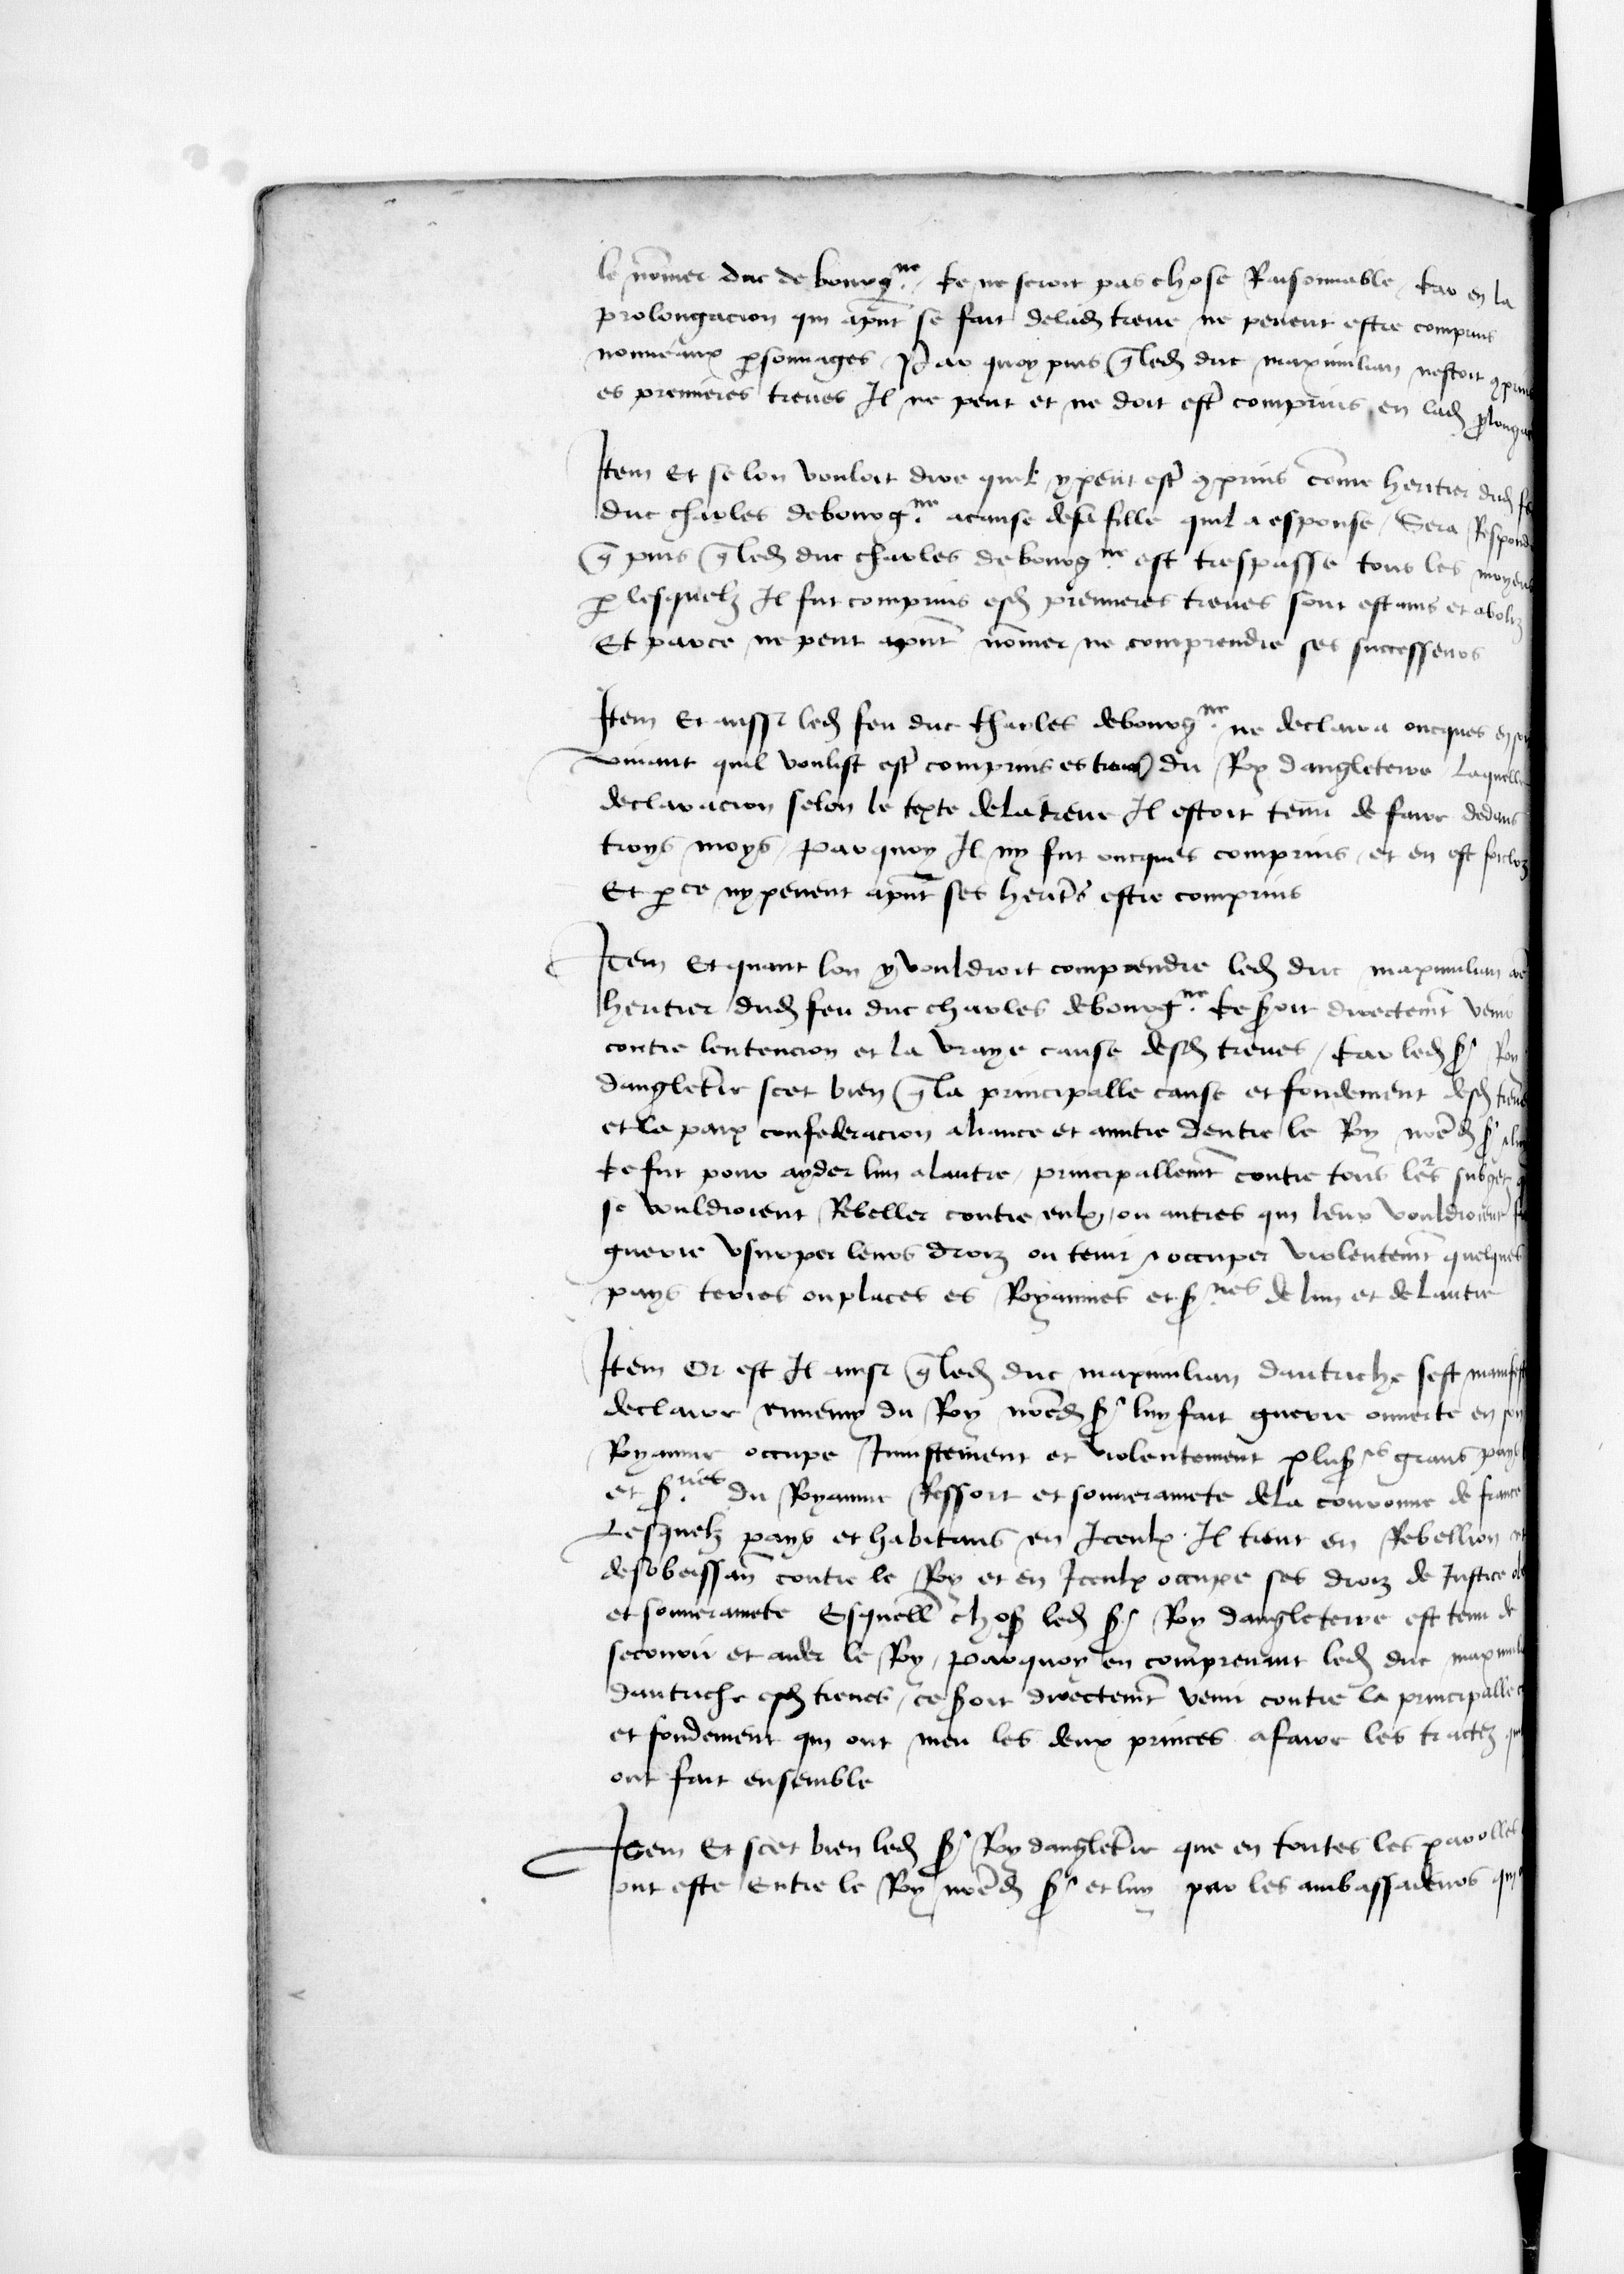 le nom̃er duc de bourgne. Ce ne seroit pas chose Raisonnable / Car en la
prolongacion qui ap̃nt se fait de lad. treue ne peuent estre comprins
nouueaulx p̱sonnages / Par quoy puis q̃ led. duc maximilian nestoit ꝯprins
es premieres treues Il ne peut et ne doit estr̃ comprins en lad. p̱longac
Item Et se lon vouloit dire quil y peut estr̃ ꝯprins com̃e heritier dud. fe
duc charles de bourgne. a cause de sa fille quil a espouse / Sera Respond
q̃ puis q̃ led. duc charles de bourgne est trespasse tous les moyens
p̱ lesquelz Il fut comprins esd. premieres treues sont estains et aboliz
Et par ce ne peut ap̃nt nom̃er ne comprendre ses successeurs
Item Et aussi led. feu duc Charles de bourgne. ne declaira oncques en son
viuant quil voulist estr̃ comprins es treues du Roy dangleterre Laquelle
declaracion selon le texte de la treue Il estoit tenu de faire dedans
troys moys / parquoy Il ny fut oncques comprins et en est forcloz
Et p̱ ce ny peuent ap̃nt ses herit̃s estre comprins
Item Et quant lon y vouldroit comprendre led. duc maximilian
heritier dud. feu duc charles de bourgne. Ce s̃oit directem̃t venir
contre lentencion et la vraye cause desd. treues / Car led. sr Roy
danglet̃re scet bien q̃ la principalle cause et fondement desd. treues
et la paix confederacion aliance et amitie dentre le Roy nr̃ed. sr
Ce fut pour ayder lun a lautre / principallem̃t contre tous lers subgetz
se vouldroient Rebeller contre eulx / ou autres qui leur vouldroient
guerre vsurper leurs droiz ou tenir & occuper violentem̃t quelques
pays terres ou places es Royaumes et sries de lun et de lautre
Item Or est Il ainsi q̃ led. duc maximilian dautriche sest manifest
declaire ennemy du Roy nr̃ed. sr luy fait guerre ouuerte en son
Royaume occupe Iniustement et violentement plus.rs grans pays
et sries du Royaume Ressort et souuerainete de la couronne de france
Lesquelz pays et habitans en Iceulx Il tient en Rebellion et
desobeissañ contre le Roy et en Iceulx occupe ses droiz de Iustice
et souuerainete Esquell̃ chos̃ led. sr Roy dangleterre est tenu de
secourir et aider le Roy / parquoy en comprenant led. duc maximili
dautriche esd. treues / ce s̃oit directem̃t venir contre la principalle
et fondement qui ont meu les deux princes a faire les traictez
ont fait ensemble
Item Et scet bien led. sr Roy danglet̃re que en toutes les parolles
ont este Entre le Roy nr̃ed. sr et luy par les ambassadeurs